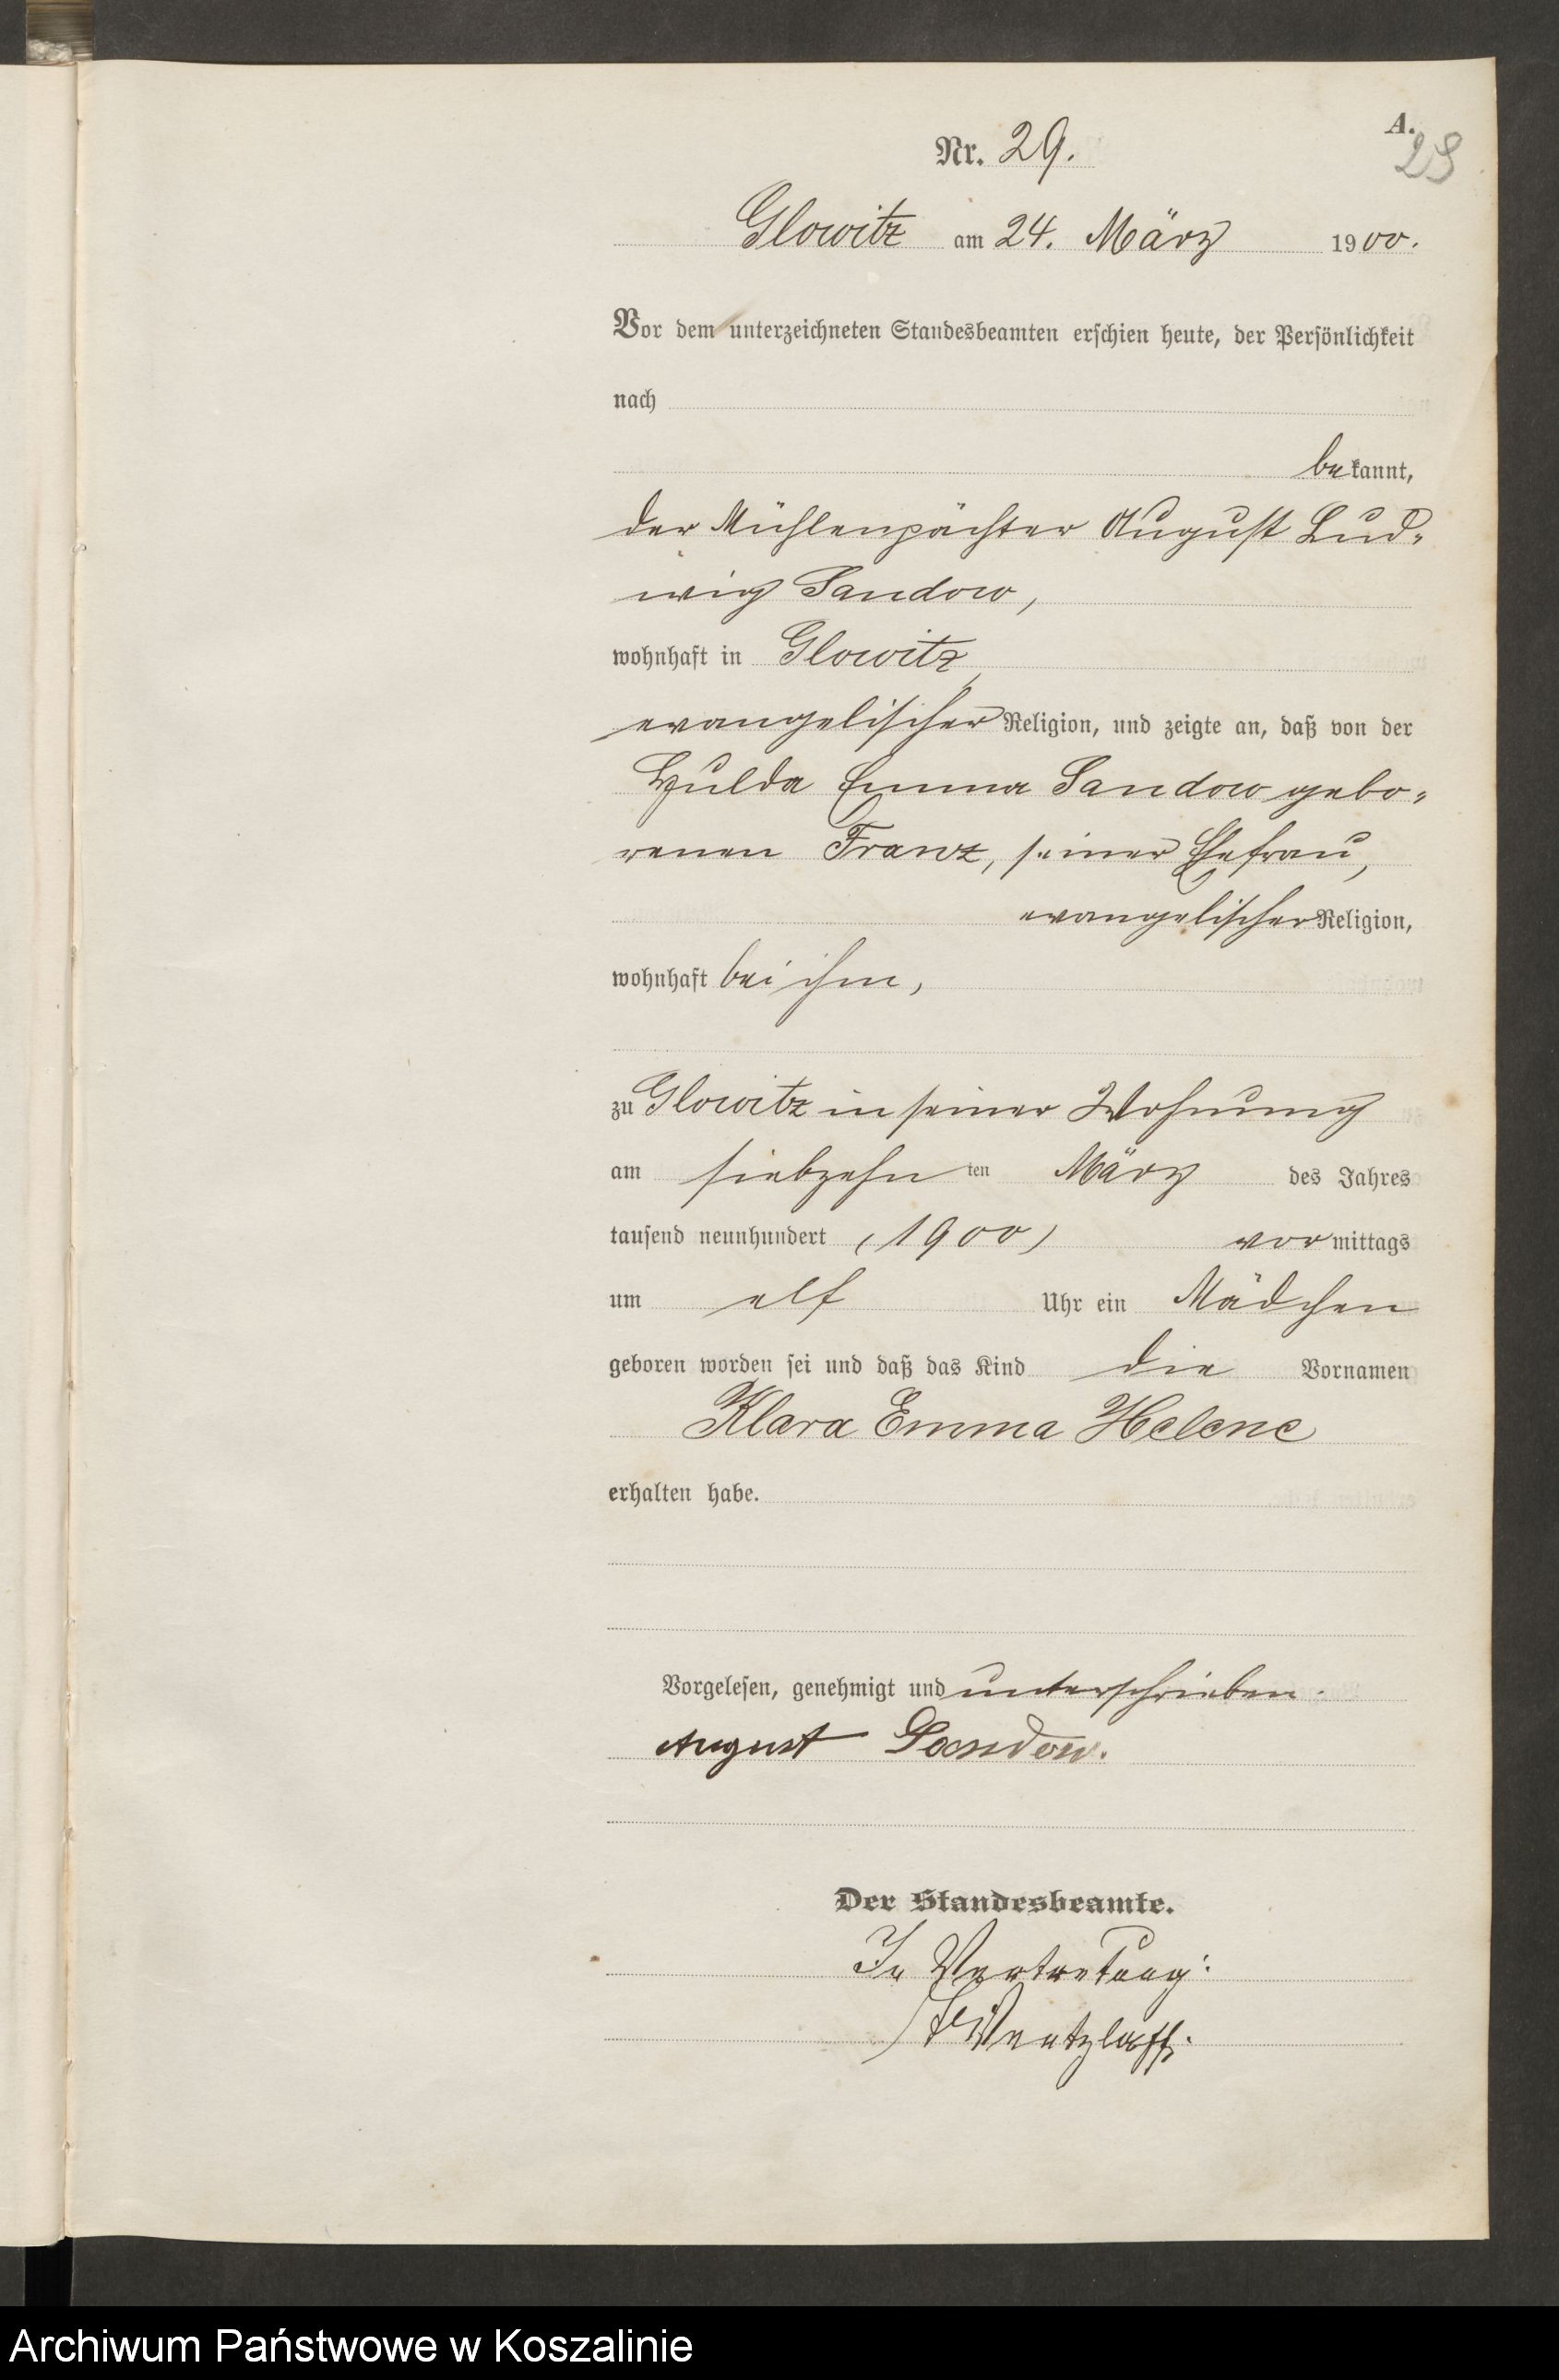 A.
29
Nr. 29.
Glowitz am 24. März 1900.
Vor dem unterzeichneten Standesbeamten erschien heute, der Persönlichkeit
nach
bekannt,
der Mühlenpächter August Lud-
wig Sandow,
wohnhaft in Glowitz,
evangelischer Religion, und zeigte an, daß von der
Hulda Emma Sandow gebo-
renen Franz, seiner Ehefrau,
evangelischer Religion,
wohnhaft bei ihm,
zu Glowitz in seiner Wohnung
am siebzehnten März des Jahres
tausend neunhundert (1900) vormittags
um elf Uhr ein Mädchen
geboren worden sei und daß das Kind die Vornamen
Klara Emma Helene
erhalten habe.
Vorgelesen, genehmigt und unterschrieben.
August Sandow.
Der Standesbeamte.
In Vertretung:
Wentzlaff.
Archiwum Państwowe w Koszalinie